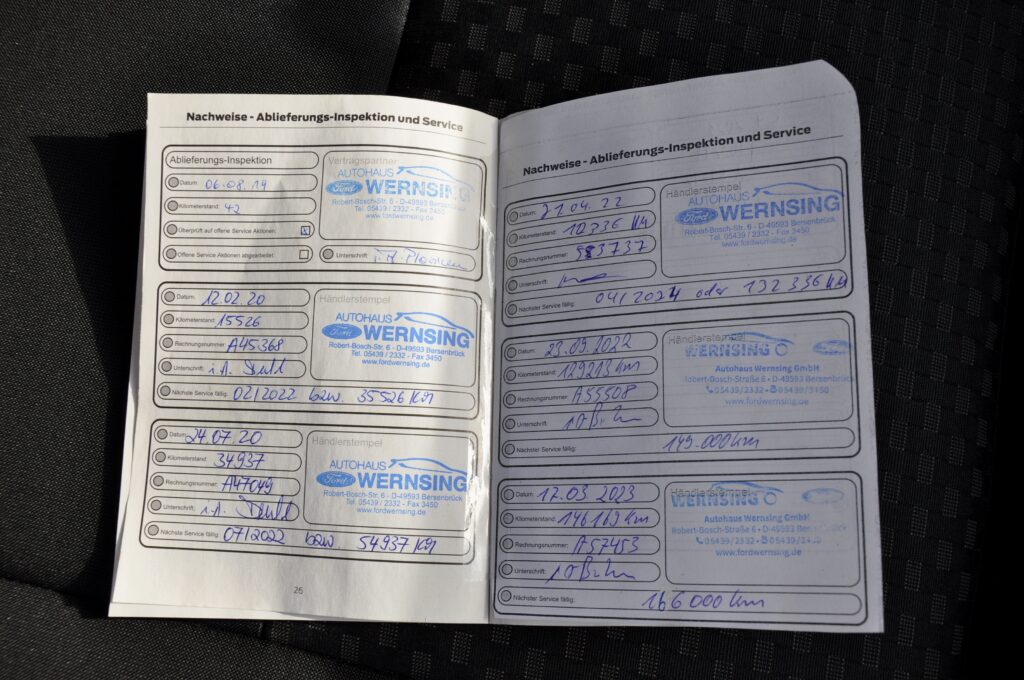 Nachweise - Ablieferungs-Inspektion und Service
Ablieferungs-Inspektion
Datum: 06.08.19
Kilometerstand: 42
Überprüft auf offene Service Aktionen: x
Offene Service Aktionen abgearbeitet:
Vertragspartner
AUTOHAUS
Ford WERNSING
Robert-Bosch-Str. 6 - D-49593 Bersenbrück
Tel. 05439 / 2332 - Fax 3450
www.fordwernsing.de
Unterschrift:
Datum: 12.02.20
Kilometerstand: 15526
Rechnungsnummer: A45368
Unterschrift: i.A.
Händlerstempel
AUTOHAUS
Ford WERNSING
Robert-Bosch-Str. 6 - D-49593 Bersenbrück
Tel. 05439 / 2332 - Fax 3450
www.fordwernsing.de
Nächste Service fällig: 02/2022 bzw. 35526 Km
Datum: 24.07.20
Kilometerstand: 34937
Rechnungsnummer: A47049
Unterschrift: i.A.
Händlerstempel
AUTOHAUS
Ford WERNSING
Robert-Bosch-Str. 6 - D-49593 Bersenbrück
Tel. 05439 / 2332 - Fax 3450
www.fordwernsing.de
Nächste Service fällig: 07/2022 bzw. 54937 Km
26
Nachweise - Ablieferungs-Inspektion und Service
Datum: 21.04.22
Kilometerstand: KM
Rechnungsnummer:
Unterschrift:
Händlerstempel
AUTOHAUS
Ford WERNSING
Robert-Bosch-Str. 6 - D-49593 Bersenbrück
Tel. 05439 / 2332 - Fax 3450
www.fordwernsing.de
Nächster Service fällig: 04/2024 oder 132 336 KM
Datum: 23.09.2022
Kilometerstand: 129213 km
Rechnungsnummer: A55508
Unterschrift:
Händlerstempel
WERNSING
Autohaus Wernsing GmbH
Robert-Bosch-Straße 6 • D-49593 Bersenbrück
05439/2332 • 05439/3450
www.fordwernsing.de
Nächster Service fällig: 149.000 km
Datum: 17.03 2023
Kilometerstand: 146169 km
Rechnungsnummer: A57453
Unterschrift:
Händlerstempel
WERNSING
Autohaus Wernsing GmbH
Robert-Bosch-Straße 6 • D-49593 Bersenbrück
05439/2332 •
www.fordwernsing.de
Nächster Service fällig: 166 000 km